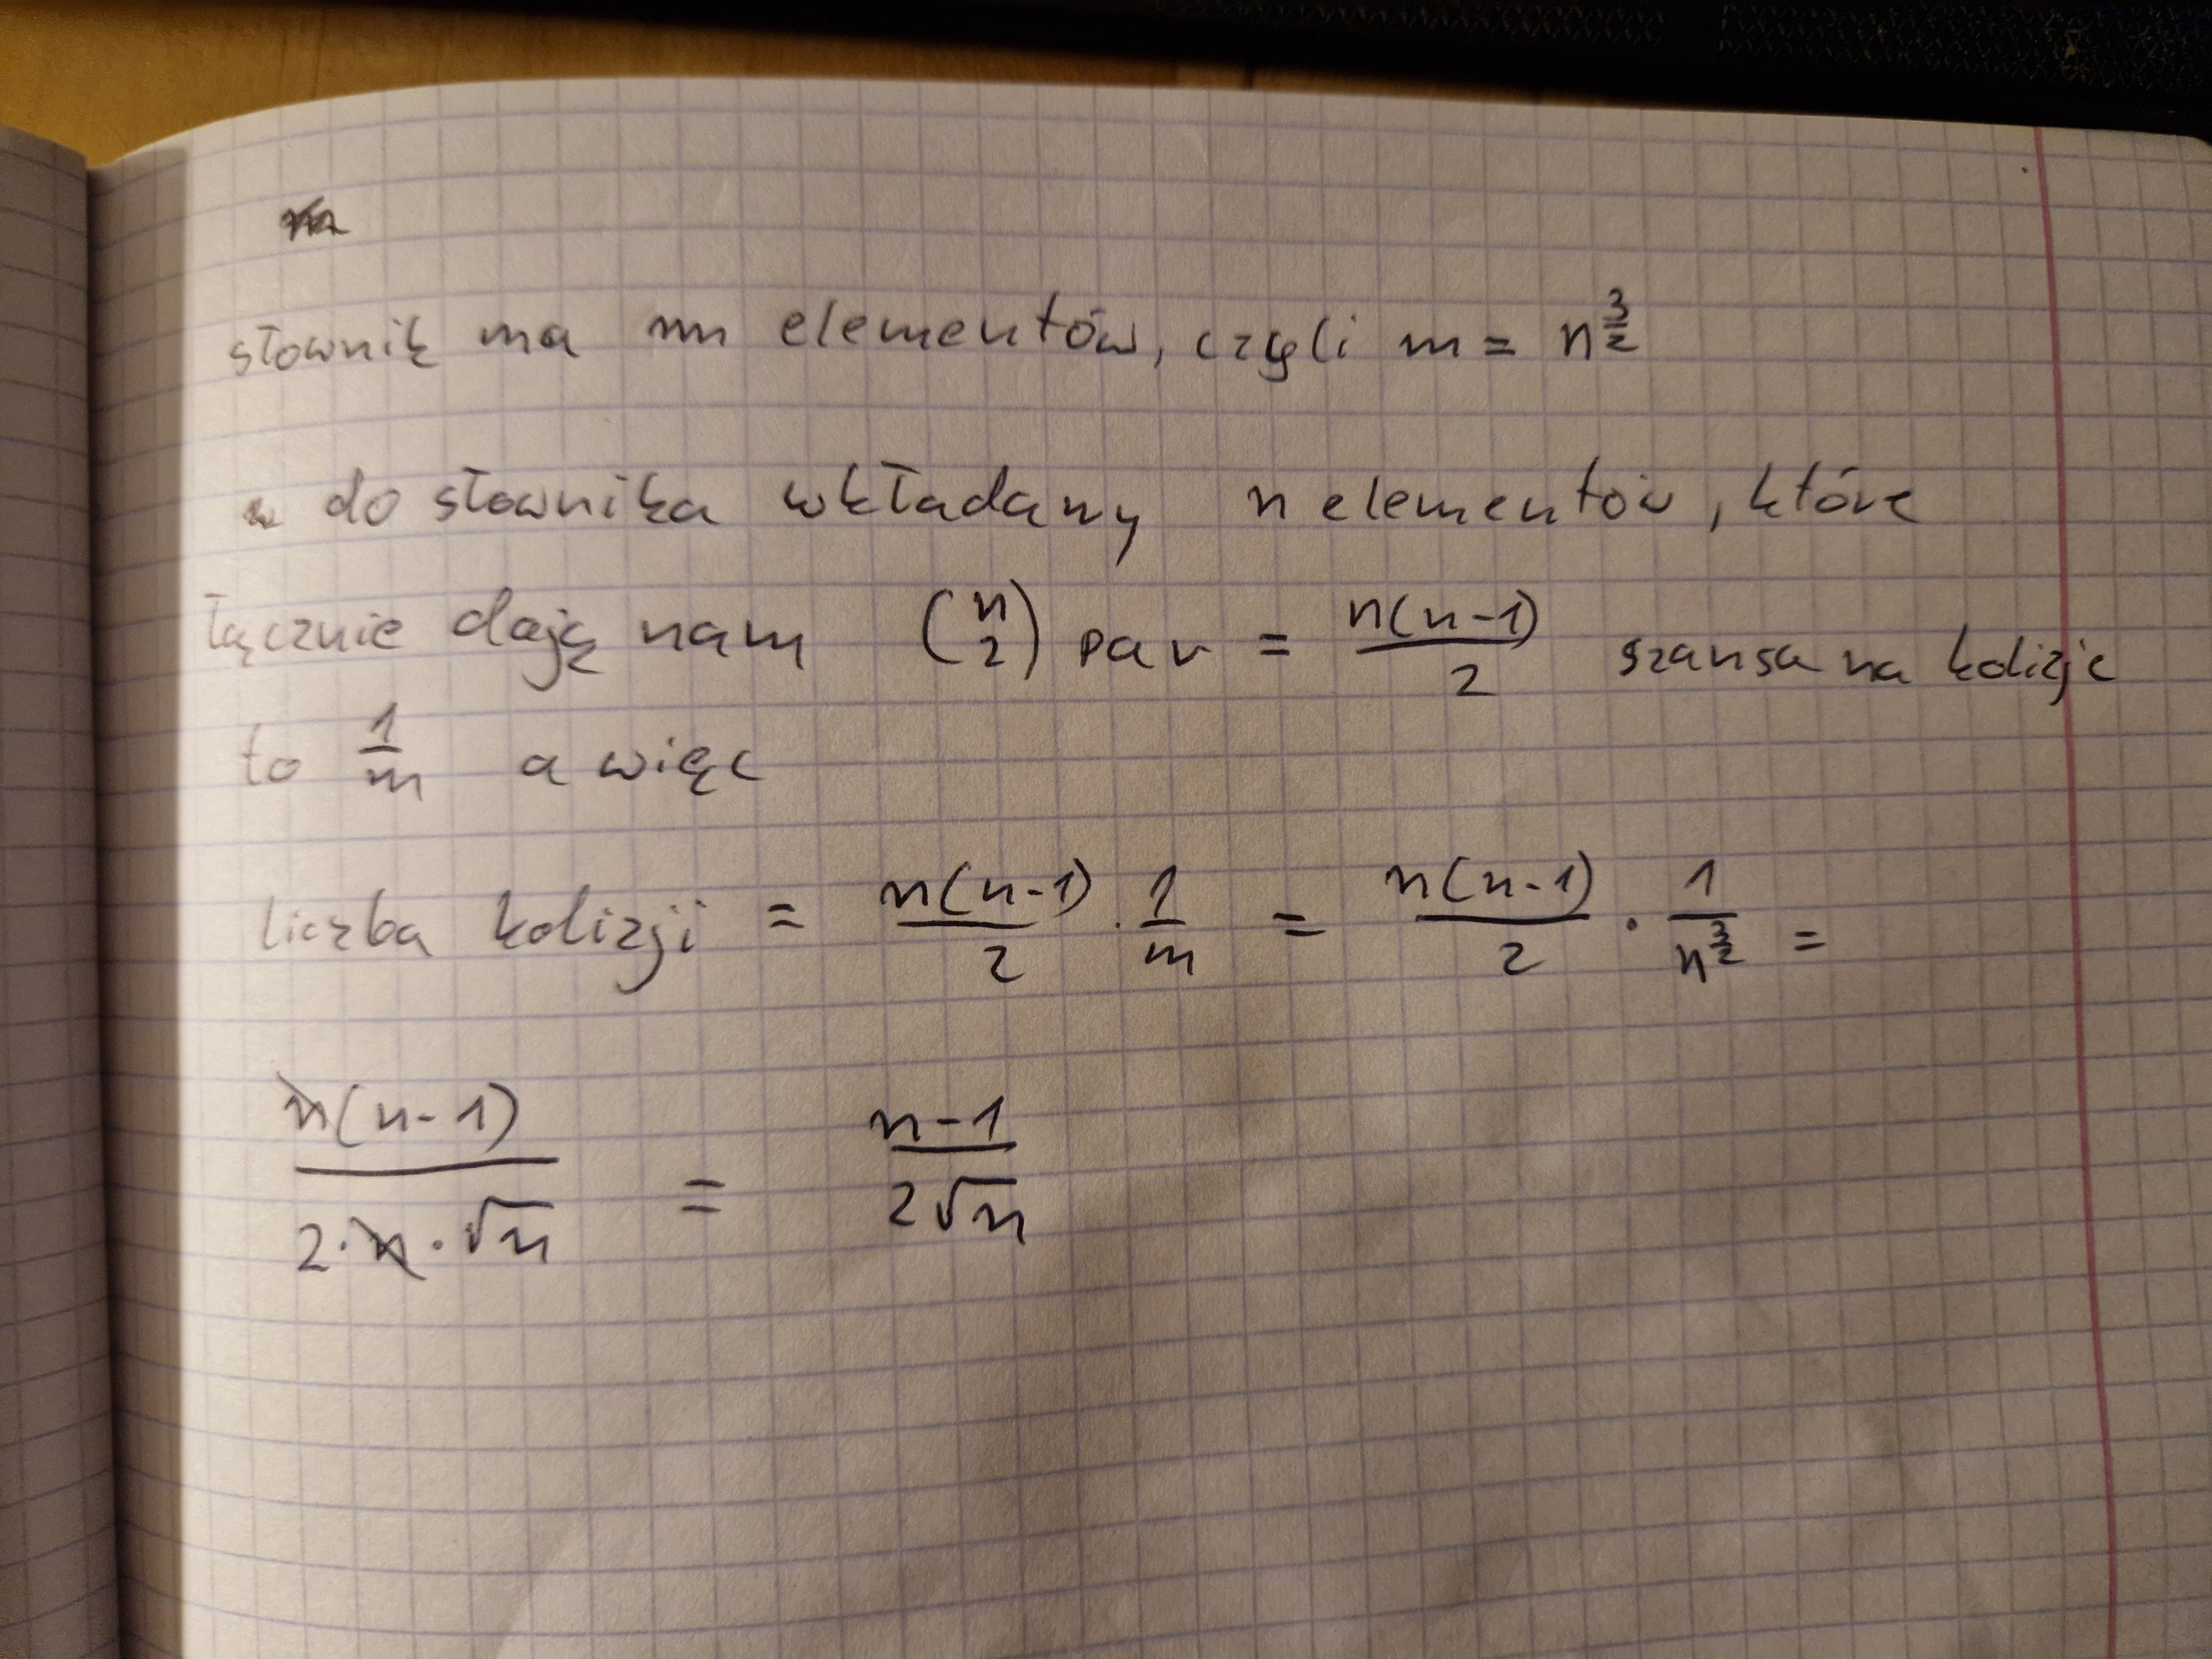 słownik ma m elementów, czyli m = n^{3/2}
do słownika wkładamy n elementów, które
łącznie dają nam (n 2) par = n(n-1)/2 szansa na kolizje
to 1/m a więc
liczba kolizji = n(n-1)/2 · 1/m = n(n-1)/2 · 1/n^{3/2} =
n(n-1)/(2·n·√n) = (n-1)/(2√n)